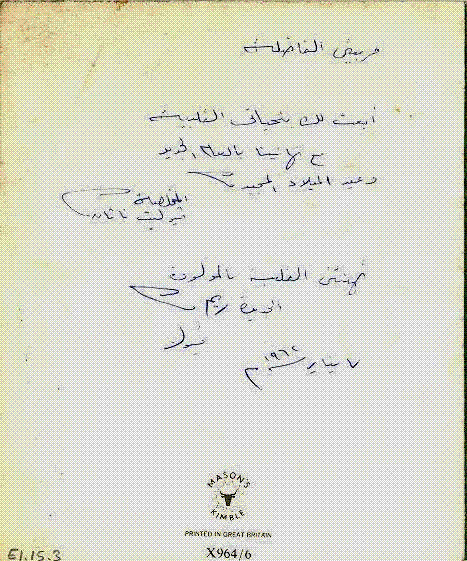 مربيتي الفاضلة
أبعث لك بتحياتي القلبية
مع تهانينا بالعام الجديد
وعيد الميلاد المجيد
المخلصة
تهنئتي القلبية بالمولودة
الجديدة ريم
٧ يناير ١٩٦٢م
MASON'S
KIMBLE
PRINTED IN GREAT BRITAIN
X964/6
E1.15.3